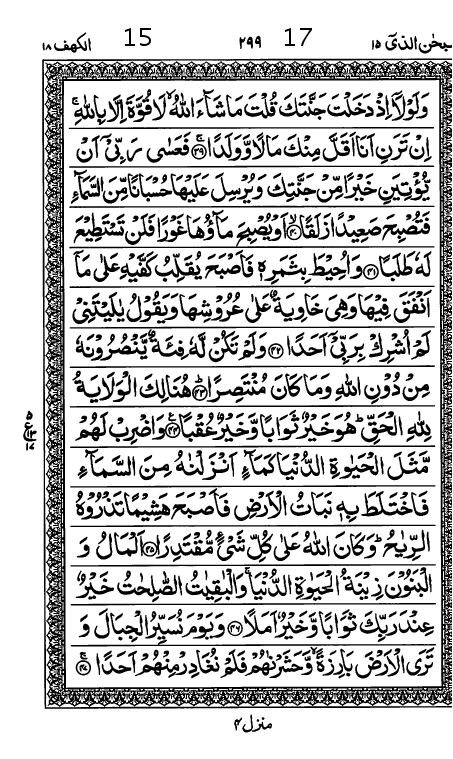 سبحن الذی ۱۵ 17 ۲۹۹ 15 الکهف ۱۸
وَلَوْلَاۤ اِذْ دَخَلْتَ جَنَّتَكَ قُلْتَ مَا شَآءَ اللّٰهُ ۙ لَا قُوَّةَ اِلَّا بِاللّٰهِ ۚ
اِنْ تَرَنِ اَنَا اَقَلَّ مِنْكَ مَالًا وَّوَلَدًا ۚ﴿۳۹﴾ فَعَسٰى رَبِّیْۤ اَنْ
یُّؤْتِیَنِ خَیْرًا مِّنْ جَنَّتِكَ وَیُرْسِلَ عَلَیْهَا حُسْبَانًا مِّنَ السَّمَآءِ
فَتُصْبِحَ صَعِیْدًا زَلَقًا ۙ﴿۴۰﴾ اَوْ یُصْبِحَ مَآؤُهَا غَوْرًا فَلَنْ تَسْتَطِیْعَ
لَهٗ طَلَبًا ﴿۴۱﴾ وَاُحِیْطَ بِثَمَرِهٖ فَاَصْبَحَ یُقَلِّبُ كَفَّیْهِ عَلٰى مَاۤ
اَنْفَقَ فِیْهَا وَهِیَ خَاوِیَةٌ عَلٰى عُرُوْشِهَا وَیَقُوْلُ یٰلَیْتَنِیْ
لَمْ اُشْرِكْ بِرَبِّیْۤ اَحَدًا ﴿۴۲﴾ وَلَمْ تَكُنْ لَّهٗ فِئَةٌ یَّنْصُرُوْنَهٗ
مِنْ دُوْنِ اللّٰهِ وَمَا كَانَ مُنْتَصِرًا ﴿۴۳﴾ هُنَالِكَ الْوَلَایَةُ
لِلّٰهِ الْحَقِّ ؕ هُوَ خَیْرٌ ثَوَابًا وَّخَیْرٌ عُقْبًا ﴿۴۴﴾ وَاضْرِبْ لَهُمْ
مَّثَلَ الْحَیٰوةِ الدُّنْیَا كَمَآءٍ اَنْزَلْنٰهُ مِنَ السَّمَآءِ
فَاخْتَلَطَ بِهٖ نَبَاتُ الْاَرْضِ فَاَصْبَحَ هَشِیْمًا تَذْرُوْهُ
الرِّیٰحُ ؕ وَكَانَ اللّٰهُ عَلٰى كُلِّ شَیْءٍ مُّقْتَدِرًا ﴿۴۵﴾ اَلْمَالُ وَ
الْبَنُوْنَ زِیْنَةُ الْحَیٰوةِ الدُّنْیَا ۚ وَالْبٰقِیٰتُ الصّٰلِحٰتُ خَیْرٌ
عِنْدَ رَبِّكَ ثَوَابًا وَّخَیْرٌ اَمَلًا ﴿۴۶﴾ وَیَوْمَ نُسَیِّرُ الْجِبَالَ وَ
تَرَى الْاَرْضَ بَارِزَةً ۙ وَّحَشَرْنٰهُمْ فَلَمْ نُغَادِرْ مِنْهُمْ اَحَدًا ۚ﴿۴۷﴾
منزل ۴